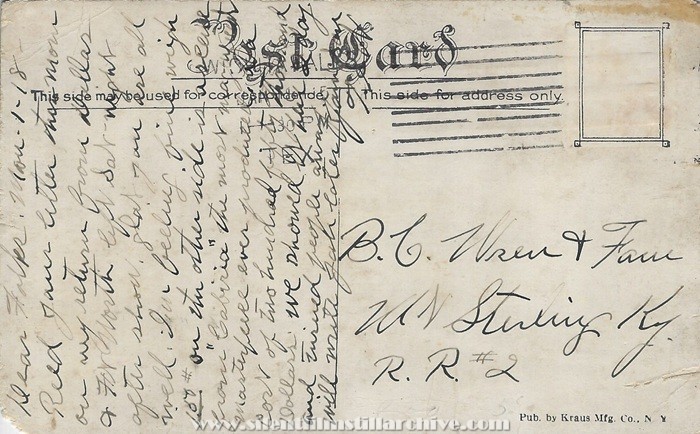 Post Card
This side may be used for correspondence.
This side for address only.
Dear Folks: Mon-1-18-
Recd your letter this morn
on my return from Dallas
& Ft Worth left Sat night
after show, glad you were all
well. Im feeling fine, weigh
150# on the other side is a scene
from "Cabiria" the most
masterpiece ever produced,
cost of two hundred fifty thousand
dollars. we should
and turned people away
will write
B. C. Wren & Fam
Mt Sterling Ky.
R. R. #2
Pub. by Kraus Mfg. Co., N. Y.
www.silentfilmstillarchive.com